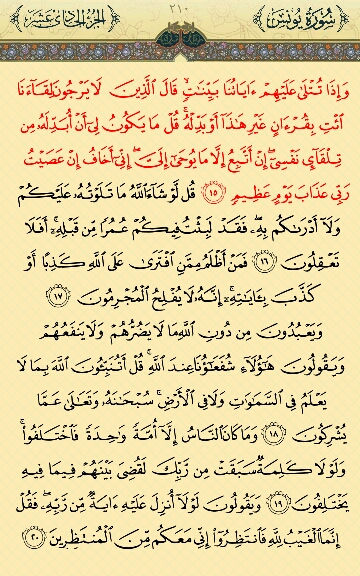 الجزء الحادی عشر
٢١٠
سُورَةُ يُونُس
وَإِذَا تُتْلَىٰ عَلَيْهِمْ ءَايَاتُنَا بَيِّنَٰتٍۙ قَالَ ٱلَّذِينَ لَا يَرْجُونَ لِقَآءَنَا
ٱئْتِ بِقُرْءَانٍ غَيْرِ هَٰذَآ أَوْ بَدِّلْهُۚ قُلْ مَا يَكُونُ لِىٓ أَنْ أُبَدِّلَهُۥ مِن
تِلْقَآئِ نَفْسِىٓۖ إِنْ أَتَّبِعُ إِلَّا مَا يُوحَىٰٓ إِلَىَّۖ إِنِّىٓ أَخَافُ إِنْ عَصَيْتُ
رَبِّى عَذَابَ يَوْمٍ عَظِيمٍ ١٥ قُل لَّوْ شَآءَ ٱللَّهُ مَا تَلَوْتُهُۥ عَلَيْكُمْ
وَلَآ أَدْرَىٰكُم بِهِۦۖ فَقَدْ لَبِثْتُ فِيكُمْ عُمُرًا مِّن قَبْلِهِۦٓۚ أَفَلَا
تَعْقِلُونَ ١٦ فَمَنْ أَظْلَمُ مِمَّنِ ٱفْتَرَىٰ عَلَى ٱللَّهِ كَذِبًا أَوْ
كَذَّبَ بِـَٔايَٰتِهِۦٓۚ إِنَّهُۥ لَا يُفْلِحُ ٱلْمُجْرِمُونَ ١٧
وَيَعْبُدُونَ مِن دُونِ ٱللَّهِ مَا لَا يَضُرُّهُمْ وَلَا يَنفَعُهُمْ
وَيَقُولُونَ هَٰٓؤُلَآءِ شُفَعَٰٓؤُنَا عِندَ ٱللَّهِۚ قُلْ أَتُنَبِّـُٔونَ ٱللَّهَ بِمَا لَا
يَعْلَمُ فِى ٱلسَّمَٰوَٰتِ وَلَا فِى ٱلْأَرْضِۚ سُبْحَٰنَهُۥ وَتَعَٰلَىٰ عَمَّا
يُشْرِكُونَ ١٨ وَمَا كَانَ ٱلنَّاسُ إِلَّآ أُمَّةً وَٰحِدَةً فَٱخْتَلَفُوا۟ۚ
وَلَوْلَا كَلِمَةٌ سَبَقَتْ مِن رَّبِّكَ لَقُضِىَ بَيْنَهُمْ فِيمَا فِيهِ
يَخْتَلِفُونَ ١٩ وَيَقُولُونَ لَوْلَآ أُنزِلَ عَلَيْهِ ءَايَةٌ مِّن رَّبِّهِۦۖ فَقُلْ
إِنَّمَا ٱلْغَيْبُ لِلَّهِ فَٱنتَظِرُوٓا۟ إِنِّى مَعَكُم مِّنَ ٱلْمُنتَظِرِينَ ٢٠